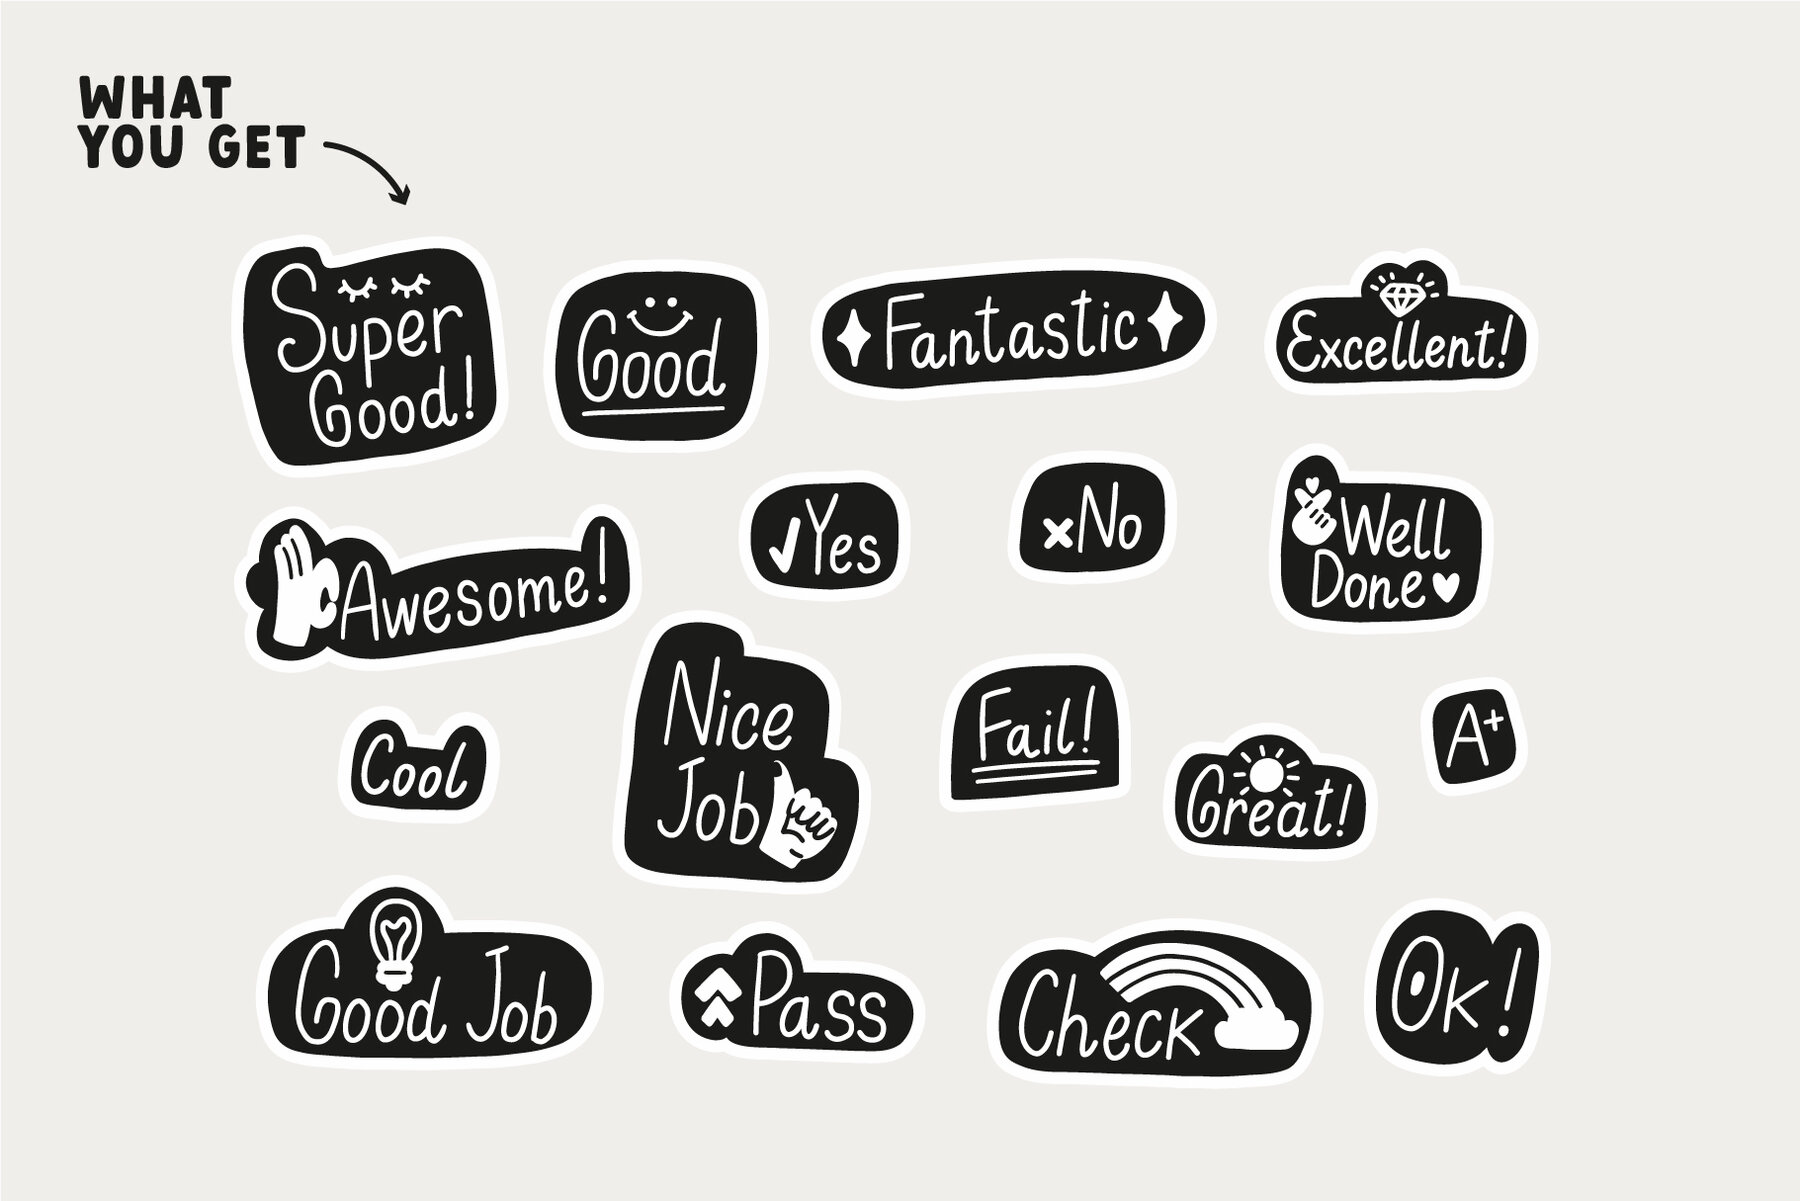 WHAT
YOU GET
Super
Good!
Good
Fantastic
Excellent!
Awesome!
Yes
No
Well
Done
Cool
Nice
Job
Fail!
Great!
A+
Good Job
Pass
Check
Ok!